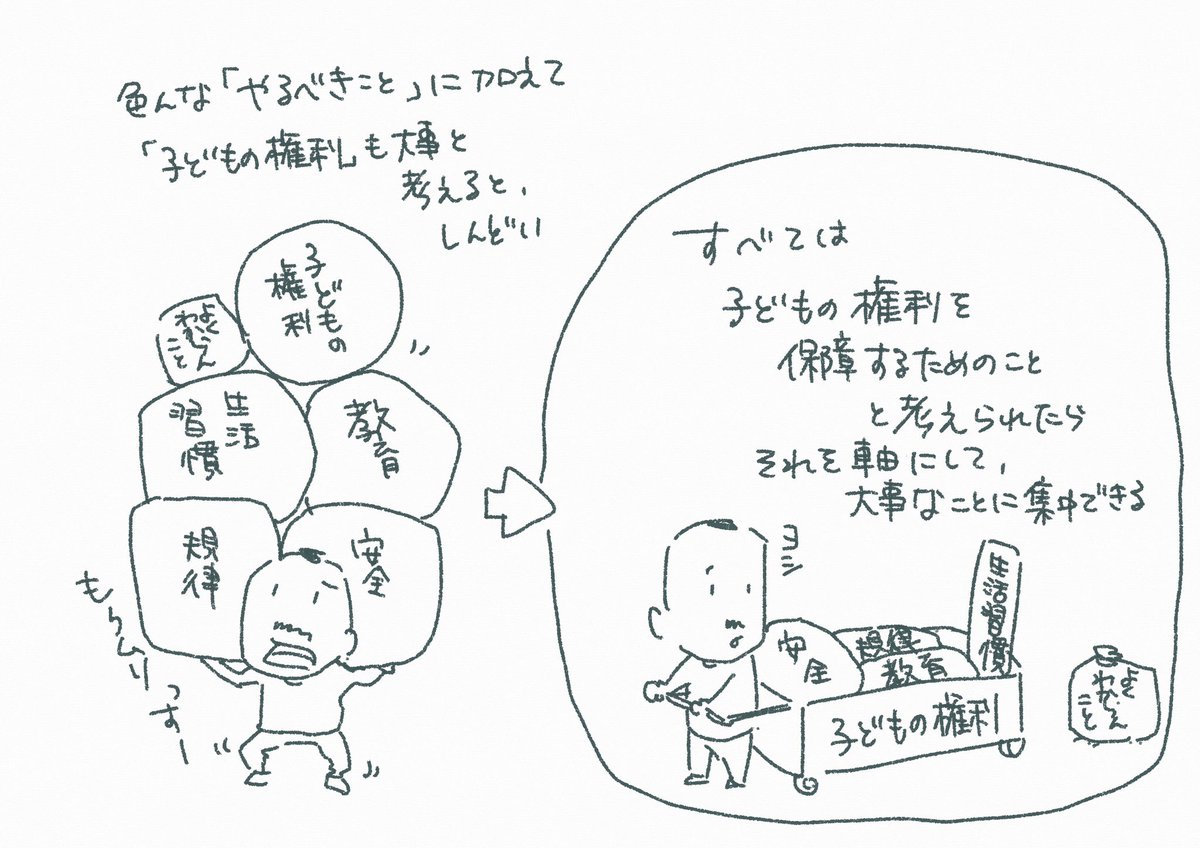 色んな「やるべきこと」に加えて
「子どもの権利」も大事と
考えると、
しんどい
子どもの
権利
よく
わからん
こと
生活
習慣
教育
規律
安全
もうムリっすー
すべては
子どもの権利を
保障するためのこと
と考えられたら
それを軸にして、
大事なことに集中できる
ヨシ
安全
規律
教育
生活習慣
子どもの権利
よく
わからん
こと